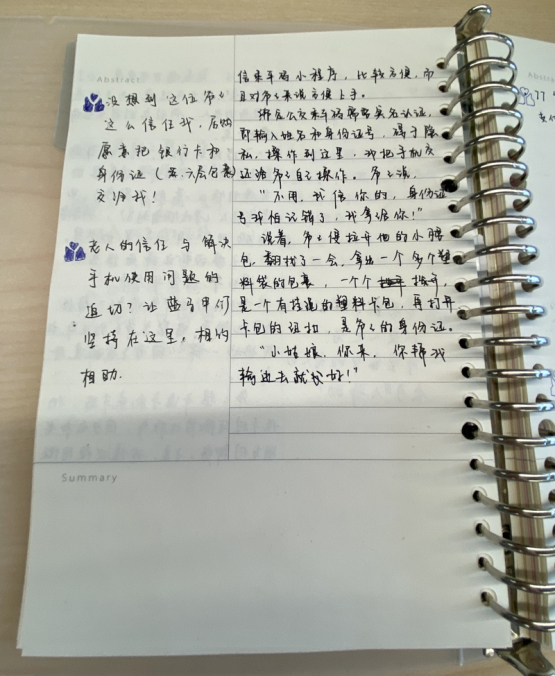 Abstract
没想到这位爷爷
这么信任我,居然
愿意把银行卡和
身份证(共六层包裹)
交给我!
老人的信任与解决
手机使用问题的
迫切?让蓝马甲们
坚持在这里,相约
相助.
信乘车码小程序,比较方便,而
且对爷爷来说方便上手。
绑定公交卡码需要实名认证,
即输入姓名和身份证号,碍于隐
私,操作到这里,我把手机交
还给爷爷自己操作。爷爷说,
“不用,我信你的,身份证
号我怕记错了,我拿给你!”
说着,爷爷慢拉开他的小腰
包,翻找了一会,拿出一个多个塑
料袋的包裹,一个个拆开,
是一个有按扭的塑料卡包,再打开
卡包的纽扣,是爷爷的身份证。
“小姑娘,你来,你帮我
输进去就挺好!”
Summary